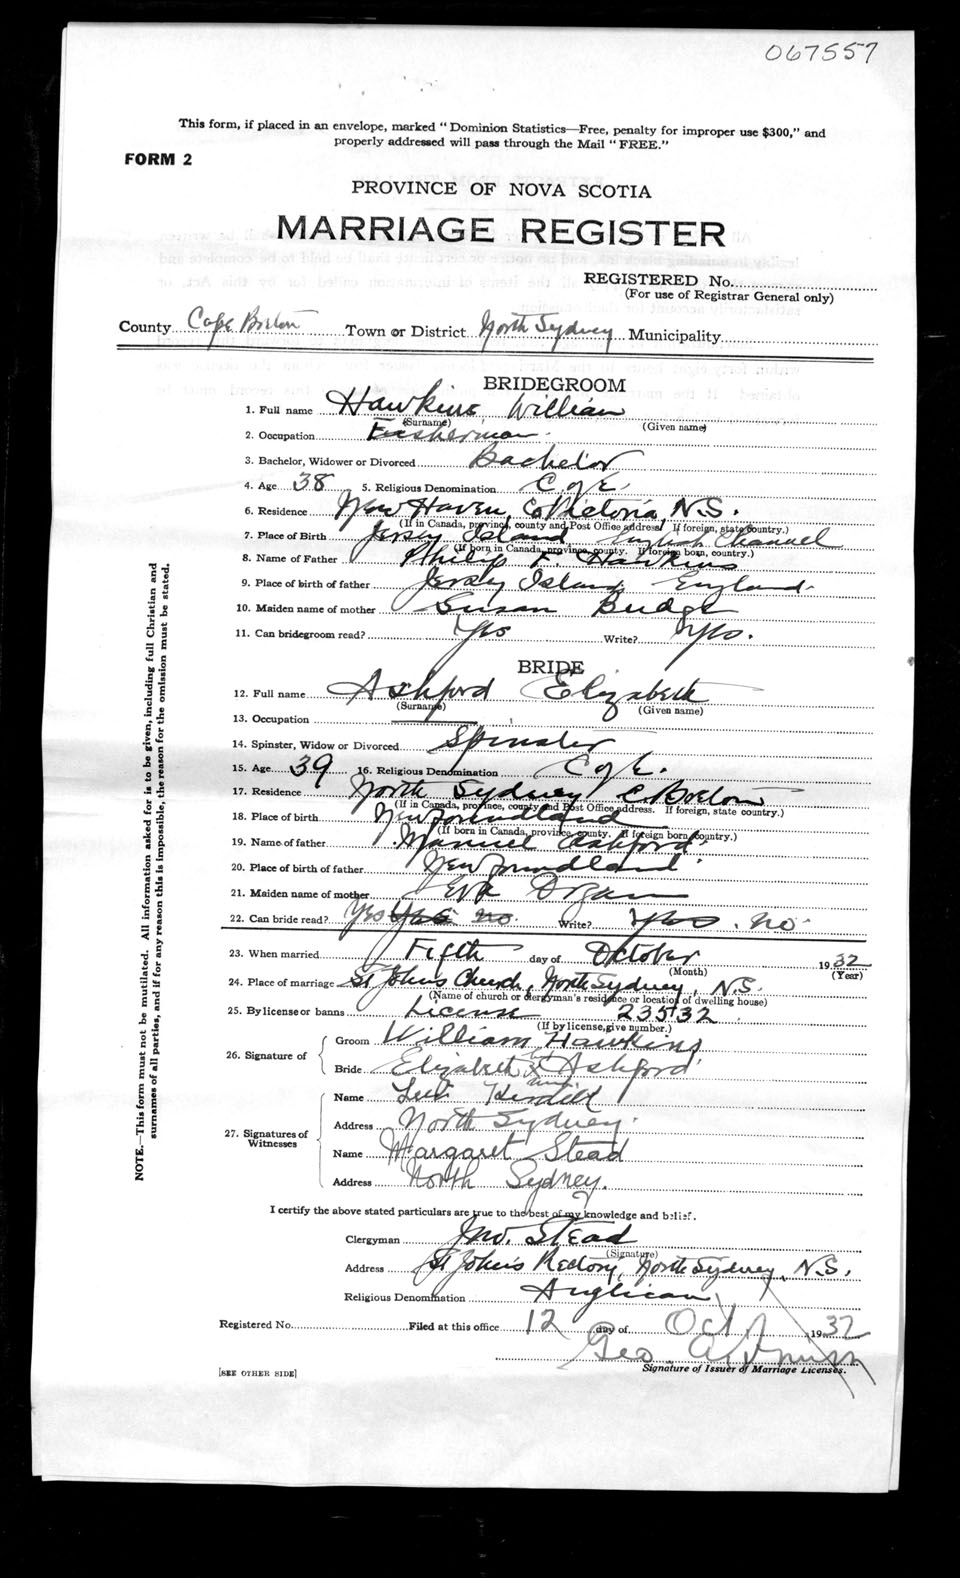 067557
This form, if placed in an envelope, marked "Dominion Statistics—Free, penalty for improper use $300," and
properly addressed will pass through the Mail "FREE."
FORM 2
PROVINCE OF NOVA SCOTIA
MARRIAGE REGISTER
REGISTERED No.
(For use of Registrar General only)
County Cape Breton Town or District North Sydney Municipality
BRIDEGROOM
1. Full name Hawkins, William
(Surname) (Given name)
2. Occupation Fisherman
3. Bachelor, Widower or Divorced Bachelor
4. Age 38 5. Religious Denomination C of E.
6. Residence New Haven, Co Victoria, N.S.
(If in Canada, province, county and Post Office address. If foreign, state country.)
7. Place of Birth Jersey Island English Channel
(If born in Canada, province, county. If foreign born, country.)
8. Name of Father Philip F. Hawkins
9. Place of birth of father Jersey Island, England.
10. Maiden name of mother Susan Budge
11. Can bridegroom read? Yes Write? Yes.
BRIDE
12. Full name Ashford Elizabeth
(Surname) (Given name)
13. Occupation
14. Spinster, Widow or Divorced Spinster
15. Age 39 16. Religious Denomination C of E.
17. Residence North Sydney C. Breton
(If in Canada, province, county and Post Office address. If foreign, state country.)
18. Place of birth Newfoundland
(If born in Canada, province, county. If foreign born, country.)
19. Name of father Manuel Ashford
20. Place of birth of father Newfoundland
21. Maiden name of mother Eva Organ
22. Can bride read? Yes Yes no. Write? Yes. no.
23. When married Fifth day of October 1932
(Month) (Year)
24. Place of marriage St John's Church, North Sydney, N.S.
(Name of church or clergyman's residence or location of dwelling house)
25. By license or banns License 23532
(If by license, give number.)
26. Signature of
Groom William Hawkins
Bride Elizabeth X Ashford
27. Signatures of Witnesses
Name
Address North Sydney.
Name Margaret Stead
Address North Sydney.
I certify the above stated particulars are true to the best of my knowledge and belief.
Clergyman Jno. Stead
(Signature)
Address St John's Rectory, North Sydney, N.S.
Religious Denomination Anglican
Registered No. Filed at this office 12 day of Oct 1932
Geo.
Signature of Issuer of Marriage Licenses.
[SEE OTHER SIDE]
NOTE.—This form must not be mutilated. All information asked for is to be given, including full Christian and
surnames of all parties, and if for any reason this is impossible, the reason for the omission must be stated.